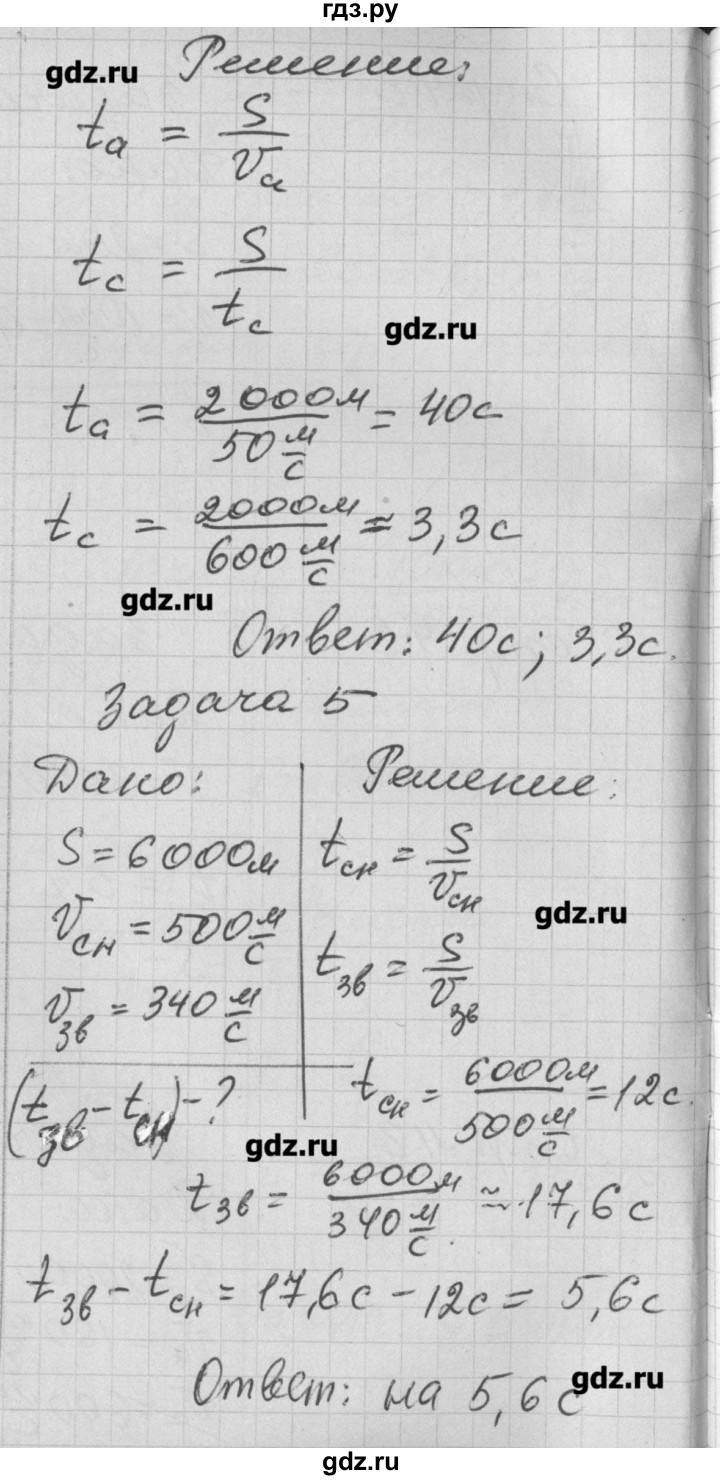 гдз.ру
gdz.ru
Решение:
tа = S/vа
tс = S/tс
gdz.ru
tа = 2000м/50 м/с = 40с
tс = 2000м/600 м/с = 3,3с
gdz.ru
Ответ: 40с; 3,3с.
Задача 5
Дано:
S = 6000м
vсн = 500 м/с
vзв = 340 м/с
(tзв - tсн) - ?
Решение:
tсн = S/vсн
gdz.ru
tзв = S/vзв
tсн = 6000м/500 м/с = 12с.
gdz.ru
tзв = 6000м/340 м/с ≈ 17,6с
tзв - tсн = 17,6с - 12с = 5,6с
gdz.ru
Ответ: на 5,6 с
gdz.ru